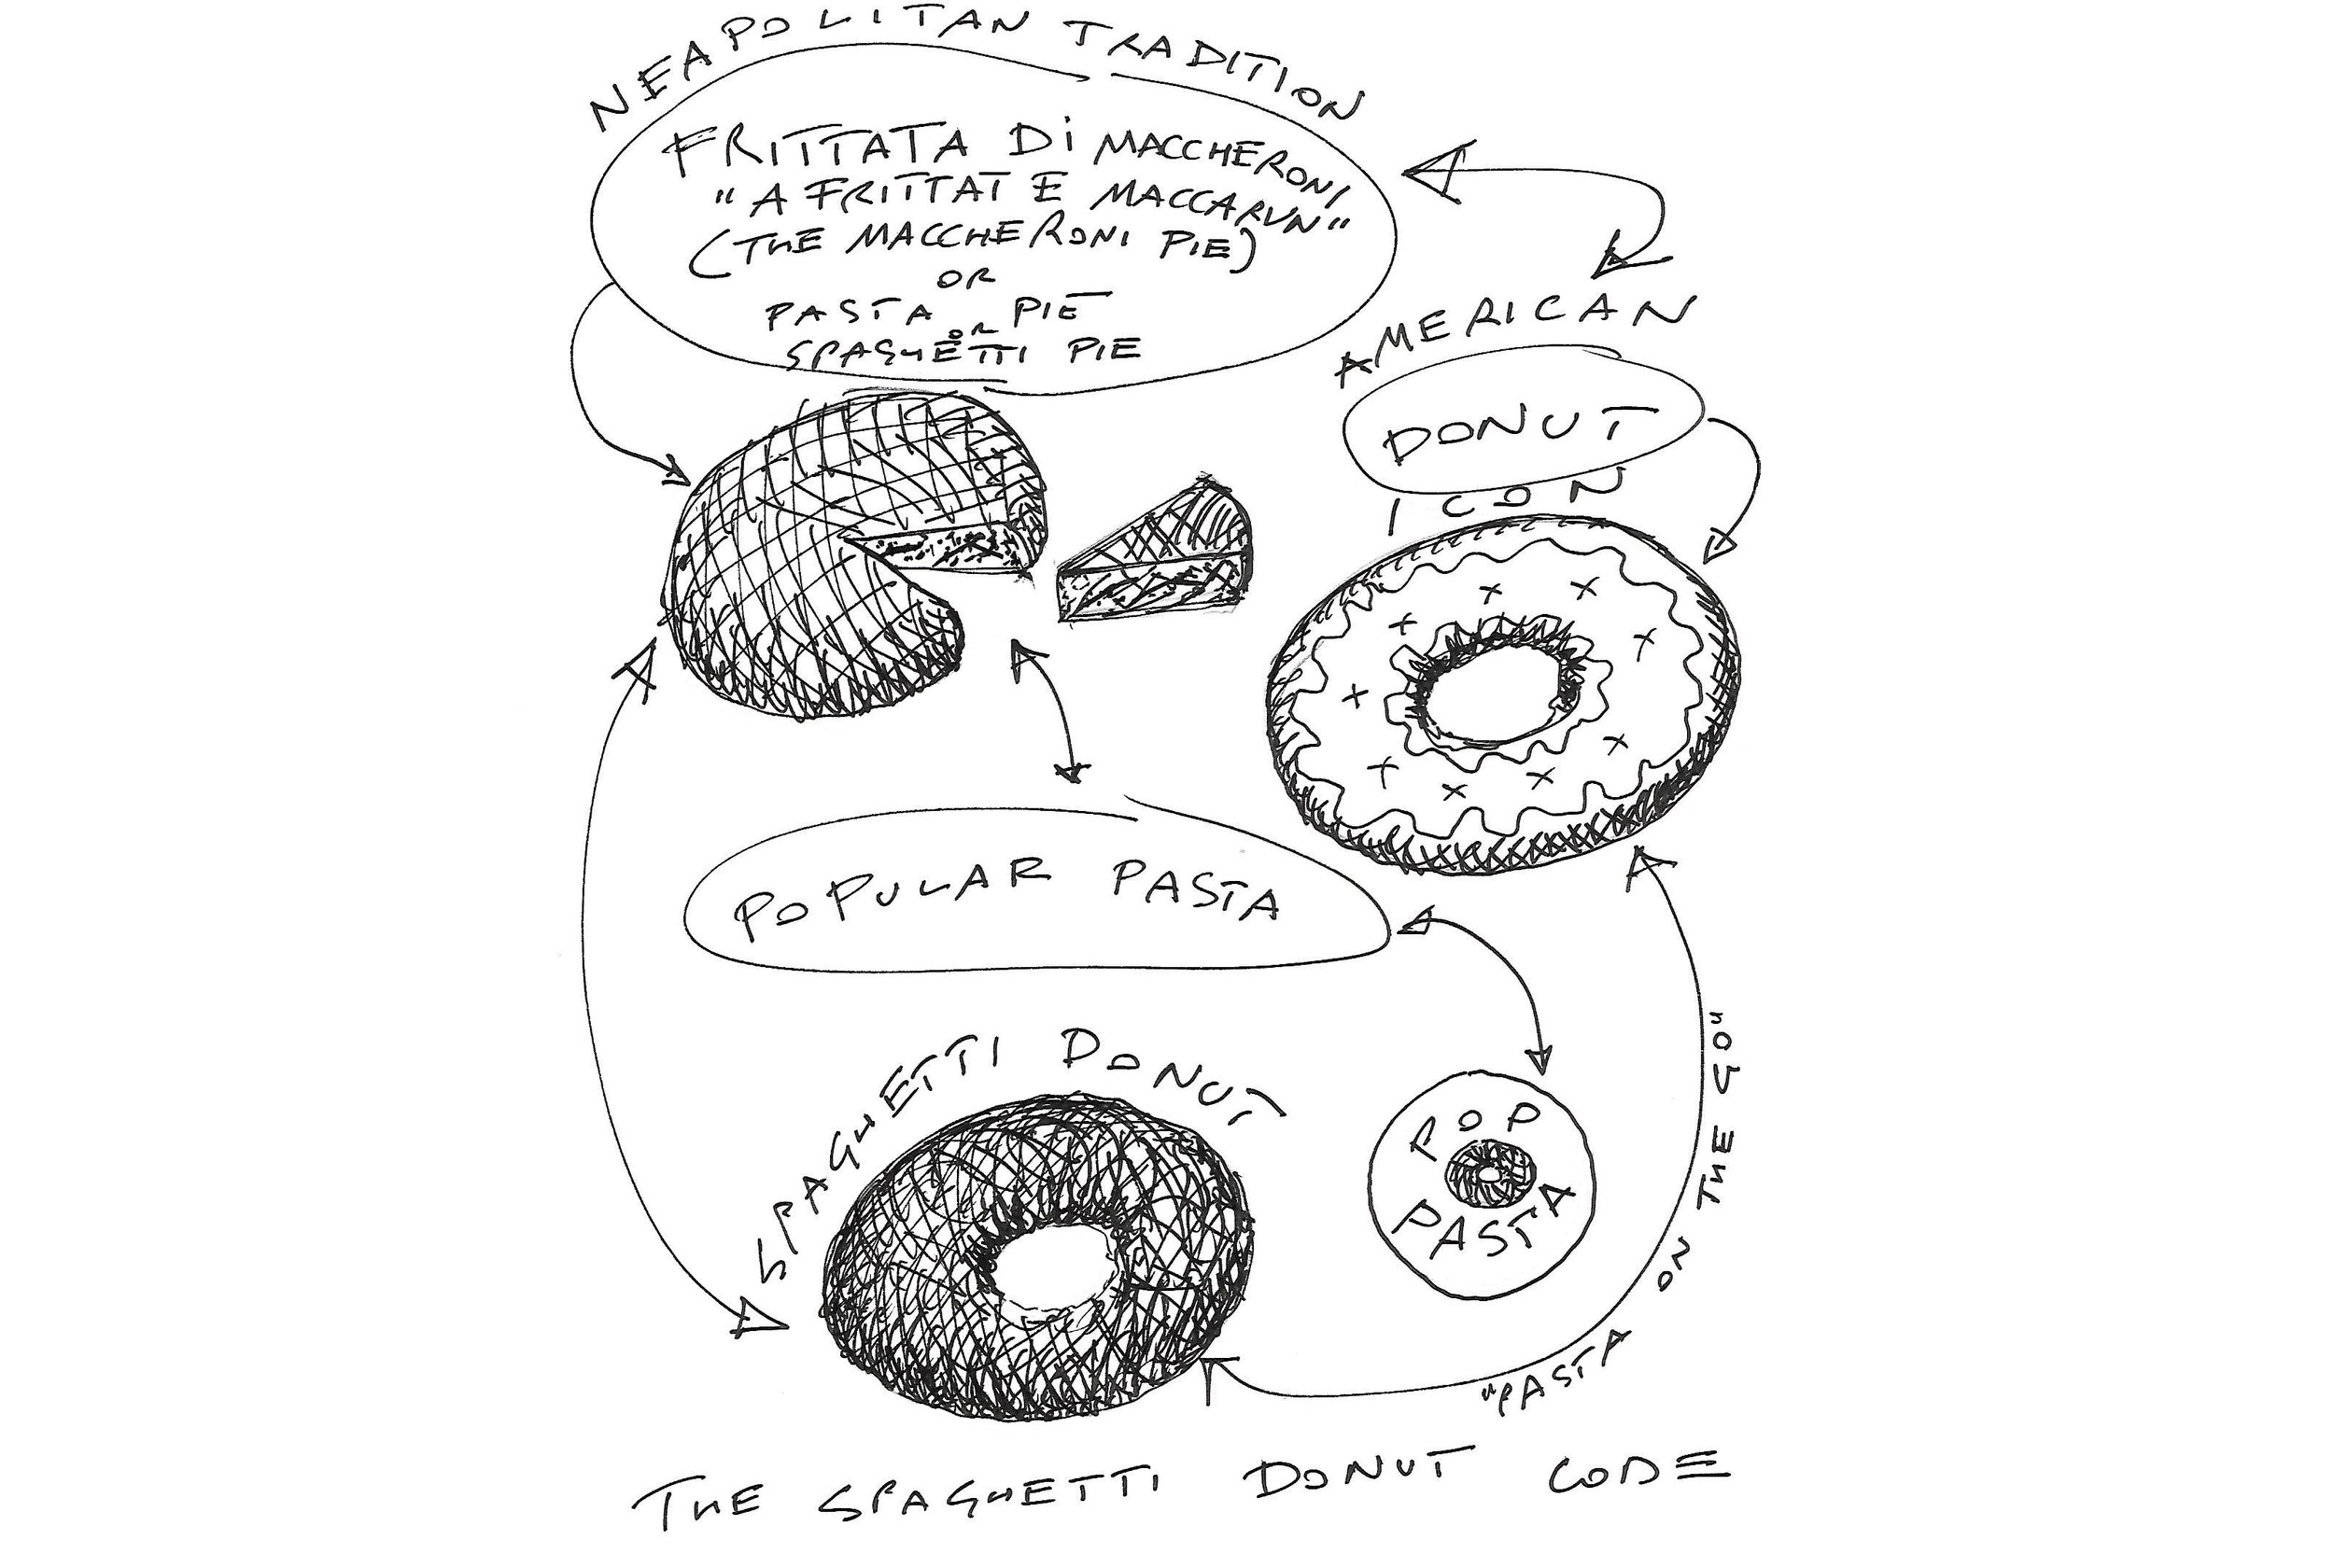 NEAPOLITAN TRADITION
FRITTATA Di MACCHERONI
"A FRITTAT E MACCARUN"
(THE MACCHERONI PIE)
OR
PASTA PIE
OR
SPAGHETTI PIE
AMERICAN
DONUT
ICON
POPULAR PASTA
SPAGHETTI DONUT
POP
PASTA
"PASTA ON THE GO"
THE SPAGHETTI DONUT CODE